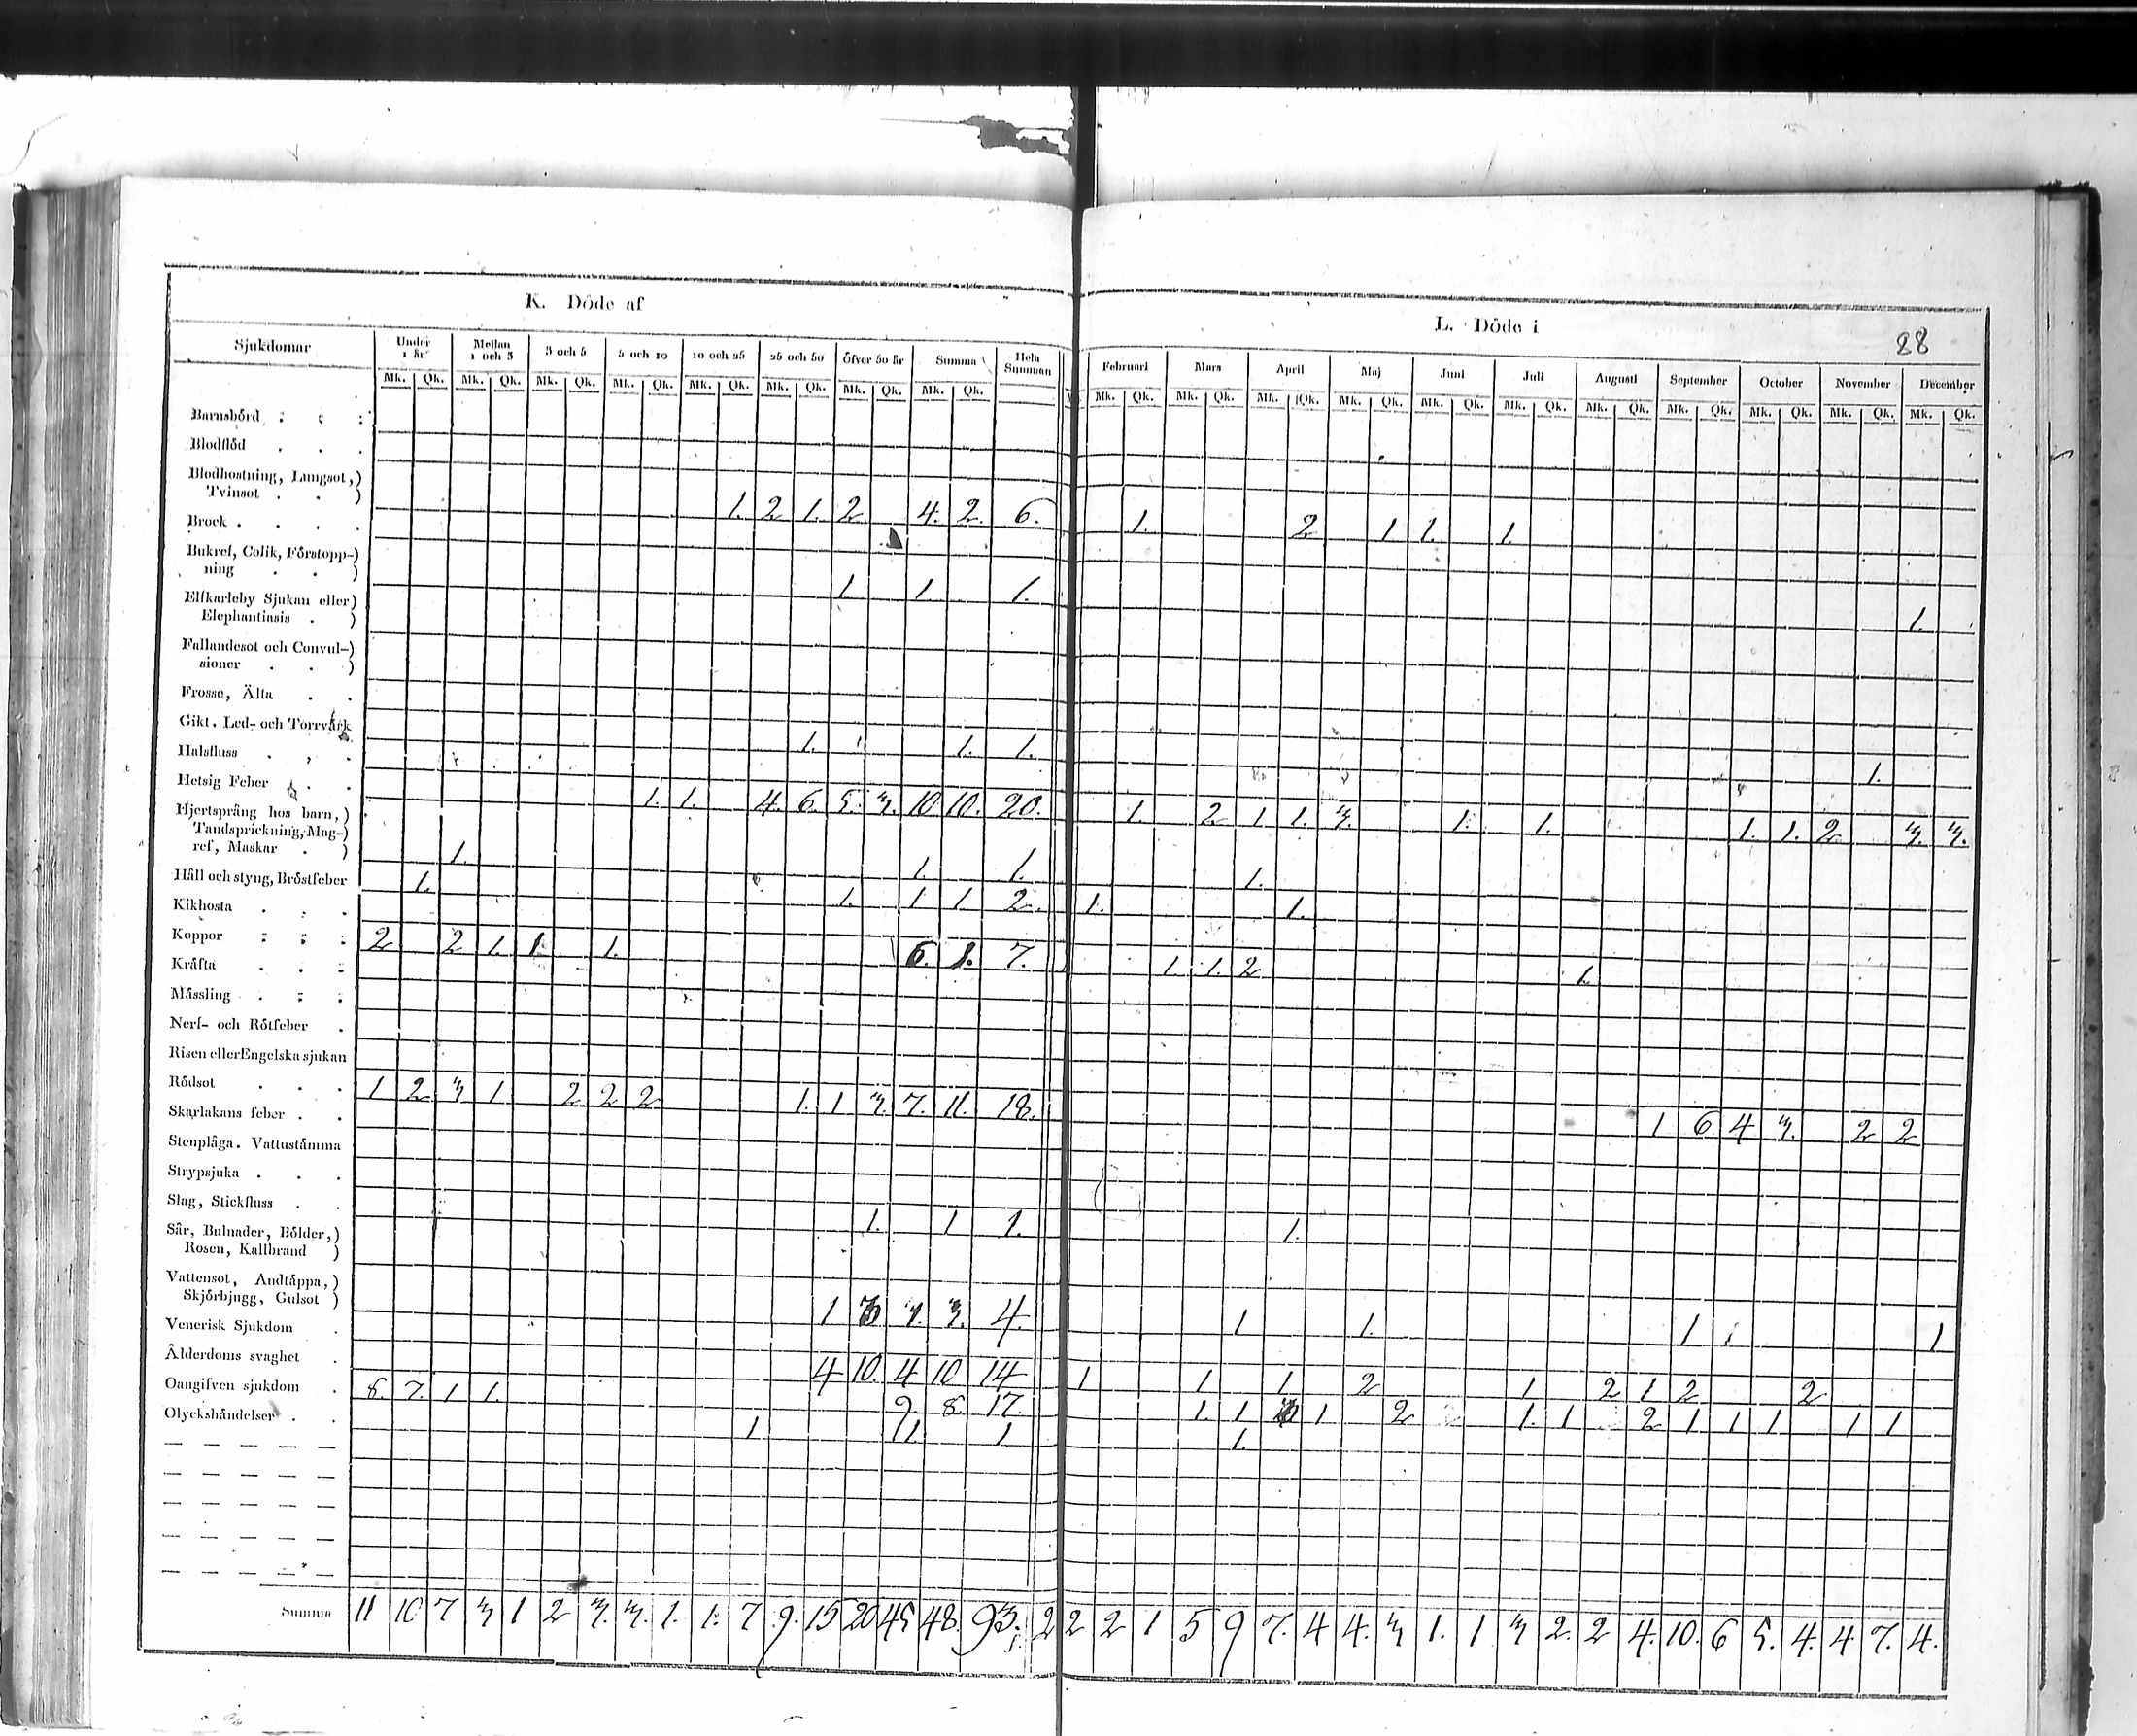 K. Döde af
L. Döde i
88
Sjukdomar Under 1 år Mellan 1 och 3 3 och 5 5 och 10 10 och 25 25 och 50 Öfver 50 år Summa Hela Summan
Februari Mars April Maj Juni Juli Augusti September October November December
Mk. Qk. Mk. Qk. Mk. Qk. Mk. Qk. Mk. Qk. Mk. Qk. Mk. Qk. Mk. Qk.
Mk. Qk. Mk. Qk. Mk. Qk. Mk. Qk. Mk. Qk. Mk. Qk. Mk. Qk. Mk. Qk. Mk. Qk. Mk. Qk. Mk. Qk.
Barnsbörd
Blodflöd
Blodhostning, Lungsot,)
Tvinsot . . ) 1. 2 1. 2 4. 2. 6. 1. 2 1 1. 1.
Brock . . . .
Bukref, Colik, Förstopp-)
ning . . ) 1 1 1.
1.
Elfkarleby Sjukan eller)
Elephantiasis . )
Fallandesot och Convul-)
sioner . . )
Frosse, Älta . .
Gikt. Led- och Torrvärk
Halsfluss . , . 1. 1. 1. 1.
Hetsig Feber . . 1. 1. 4. 6. 5. 3. 10. 10. 20. 1. 2 1 1. 3. 1. 1. 1. 1. 2 3. 3.
Hjertsprång hos barn, )
Tandsprickning, Mag-)
ref, Maskar . ) 1. 1. 1. 1.
Håll och styng, Bröstfeber 1. 1. 1 1 2. 1. 1.
Kikhosta . . .
Koppor 2 2 1. 1 1. 6. 1. 7. 1 1. 2 1.
Kräfta . . .
Mässling . . .
Nerf- och Rötfeber .
Risen eller Engelska sjukan
Rödsot . . . 1 2 3 1. 2 2 2 1. 1 3. 7. 11. 18. 1 6 4 3. 2 2
Skarlakans feber . .
Stenplåga. Vattustämma
Strypsjuka . . .
Slag, Stickfluss . . 1. 1 1. 1.
Sår, Bulnader, Bölder,)
Rosen, Kallbrand )
Vattensot, Andtäppa, )
Skjörbjugg, Gulsot ) 1 3. 4. 1 1. 1 1 1
Venerisk Sjukdom .
Ålderdoms svaghet . 4 10. 4 10 14 1 1 1 2 1 2 1 2 2
Oangifven sjukdom . 8. 7. 1 1. 9. 8. 17. 1. 1 1 2 1. 1 2 1 1 1 1 1
Olyckshändelser . . 1 1. 1 1.
Summa 11 10 7 3 1 2 3. 3. 1. 1. 7 9. 15 20 45 48. 93. 2 2 2 1 5 9 7. 4 4. 3 1. 1 3 2. 2 4. 10. 6 5. 4. 4 7. 4.